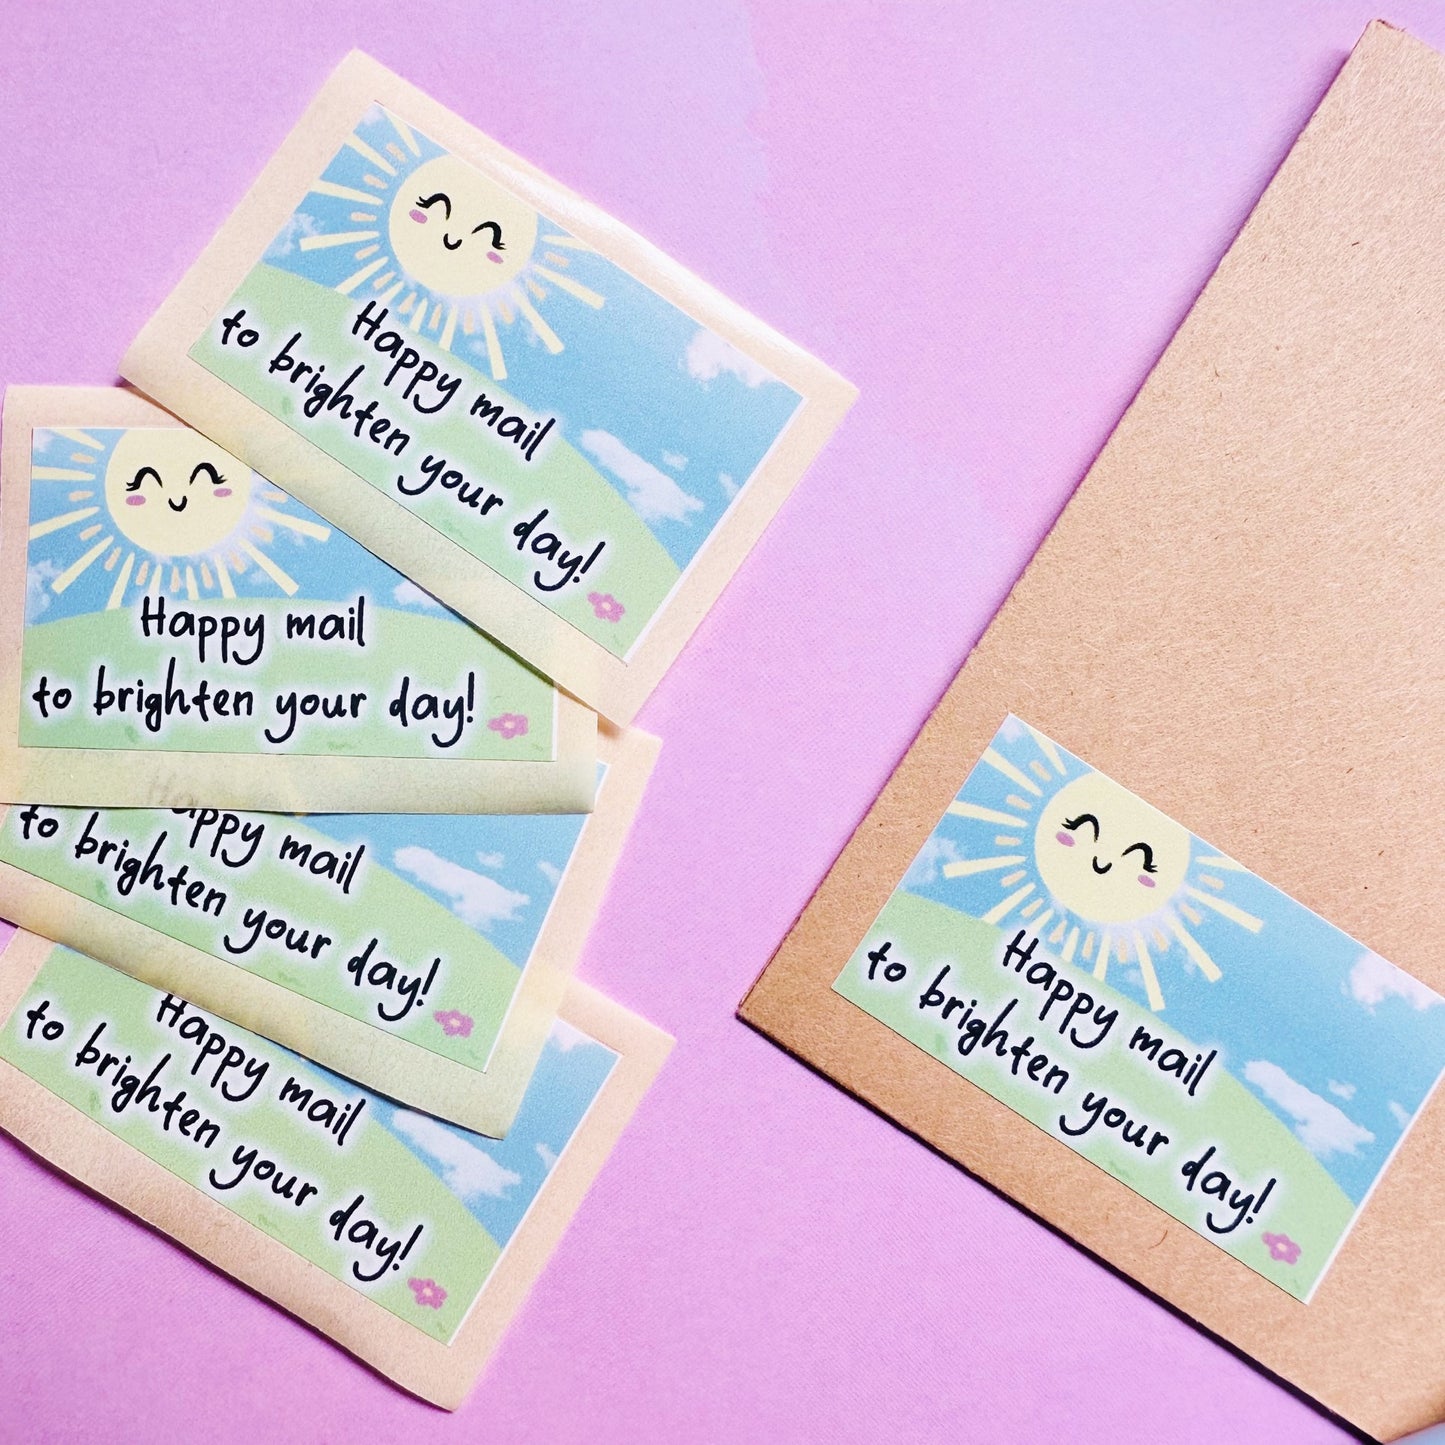 Happy mail
to brighten your day!
Happy mail
to brighten your day!
Happy mail
to brighten your day!
Happy mail
to brighten your day!
Happy mail
to brighten your day!